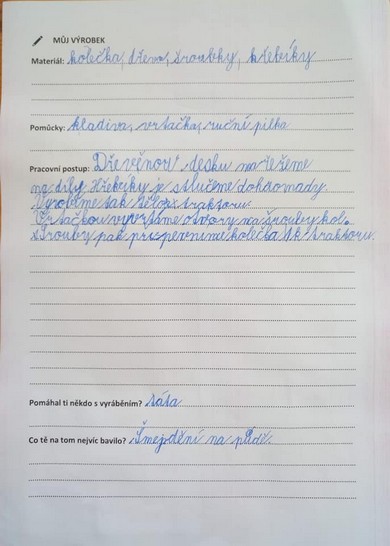 MŮJ VÝROBEK
Materiál: kolečka, dřevo, šroubky, hřebíky
Pomůcky: kladiva, vrtačka, ruční pilka
Pracovní postup: Dřevěnou desku nařežeme
na díly. Hřebíky je stlučeme dohromady.
Vyrobíme tak tělo traktoru.
Vrtačkou vyvrtáme otvory na šrouby kol.
Šrouby pak připevníme kolečka k traktoru.
Pomáhal ti někdo s vyráběním? táta
Co tě na tom nejvíc bavilo? Šmejdění na půdě.